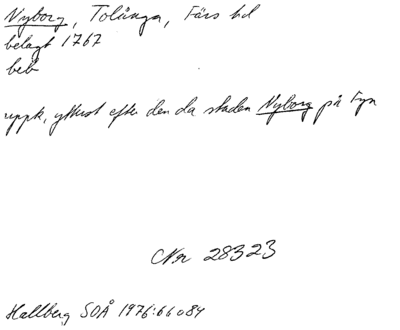 Nyborg, Tolånga, Färs hd
belagt 1767
beb
uppk, ytterst efter den da staden Nyborg på Fyn
Nr 28323
Hallberg SOÅ 1976:66 o 84